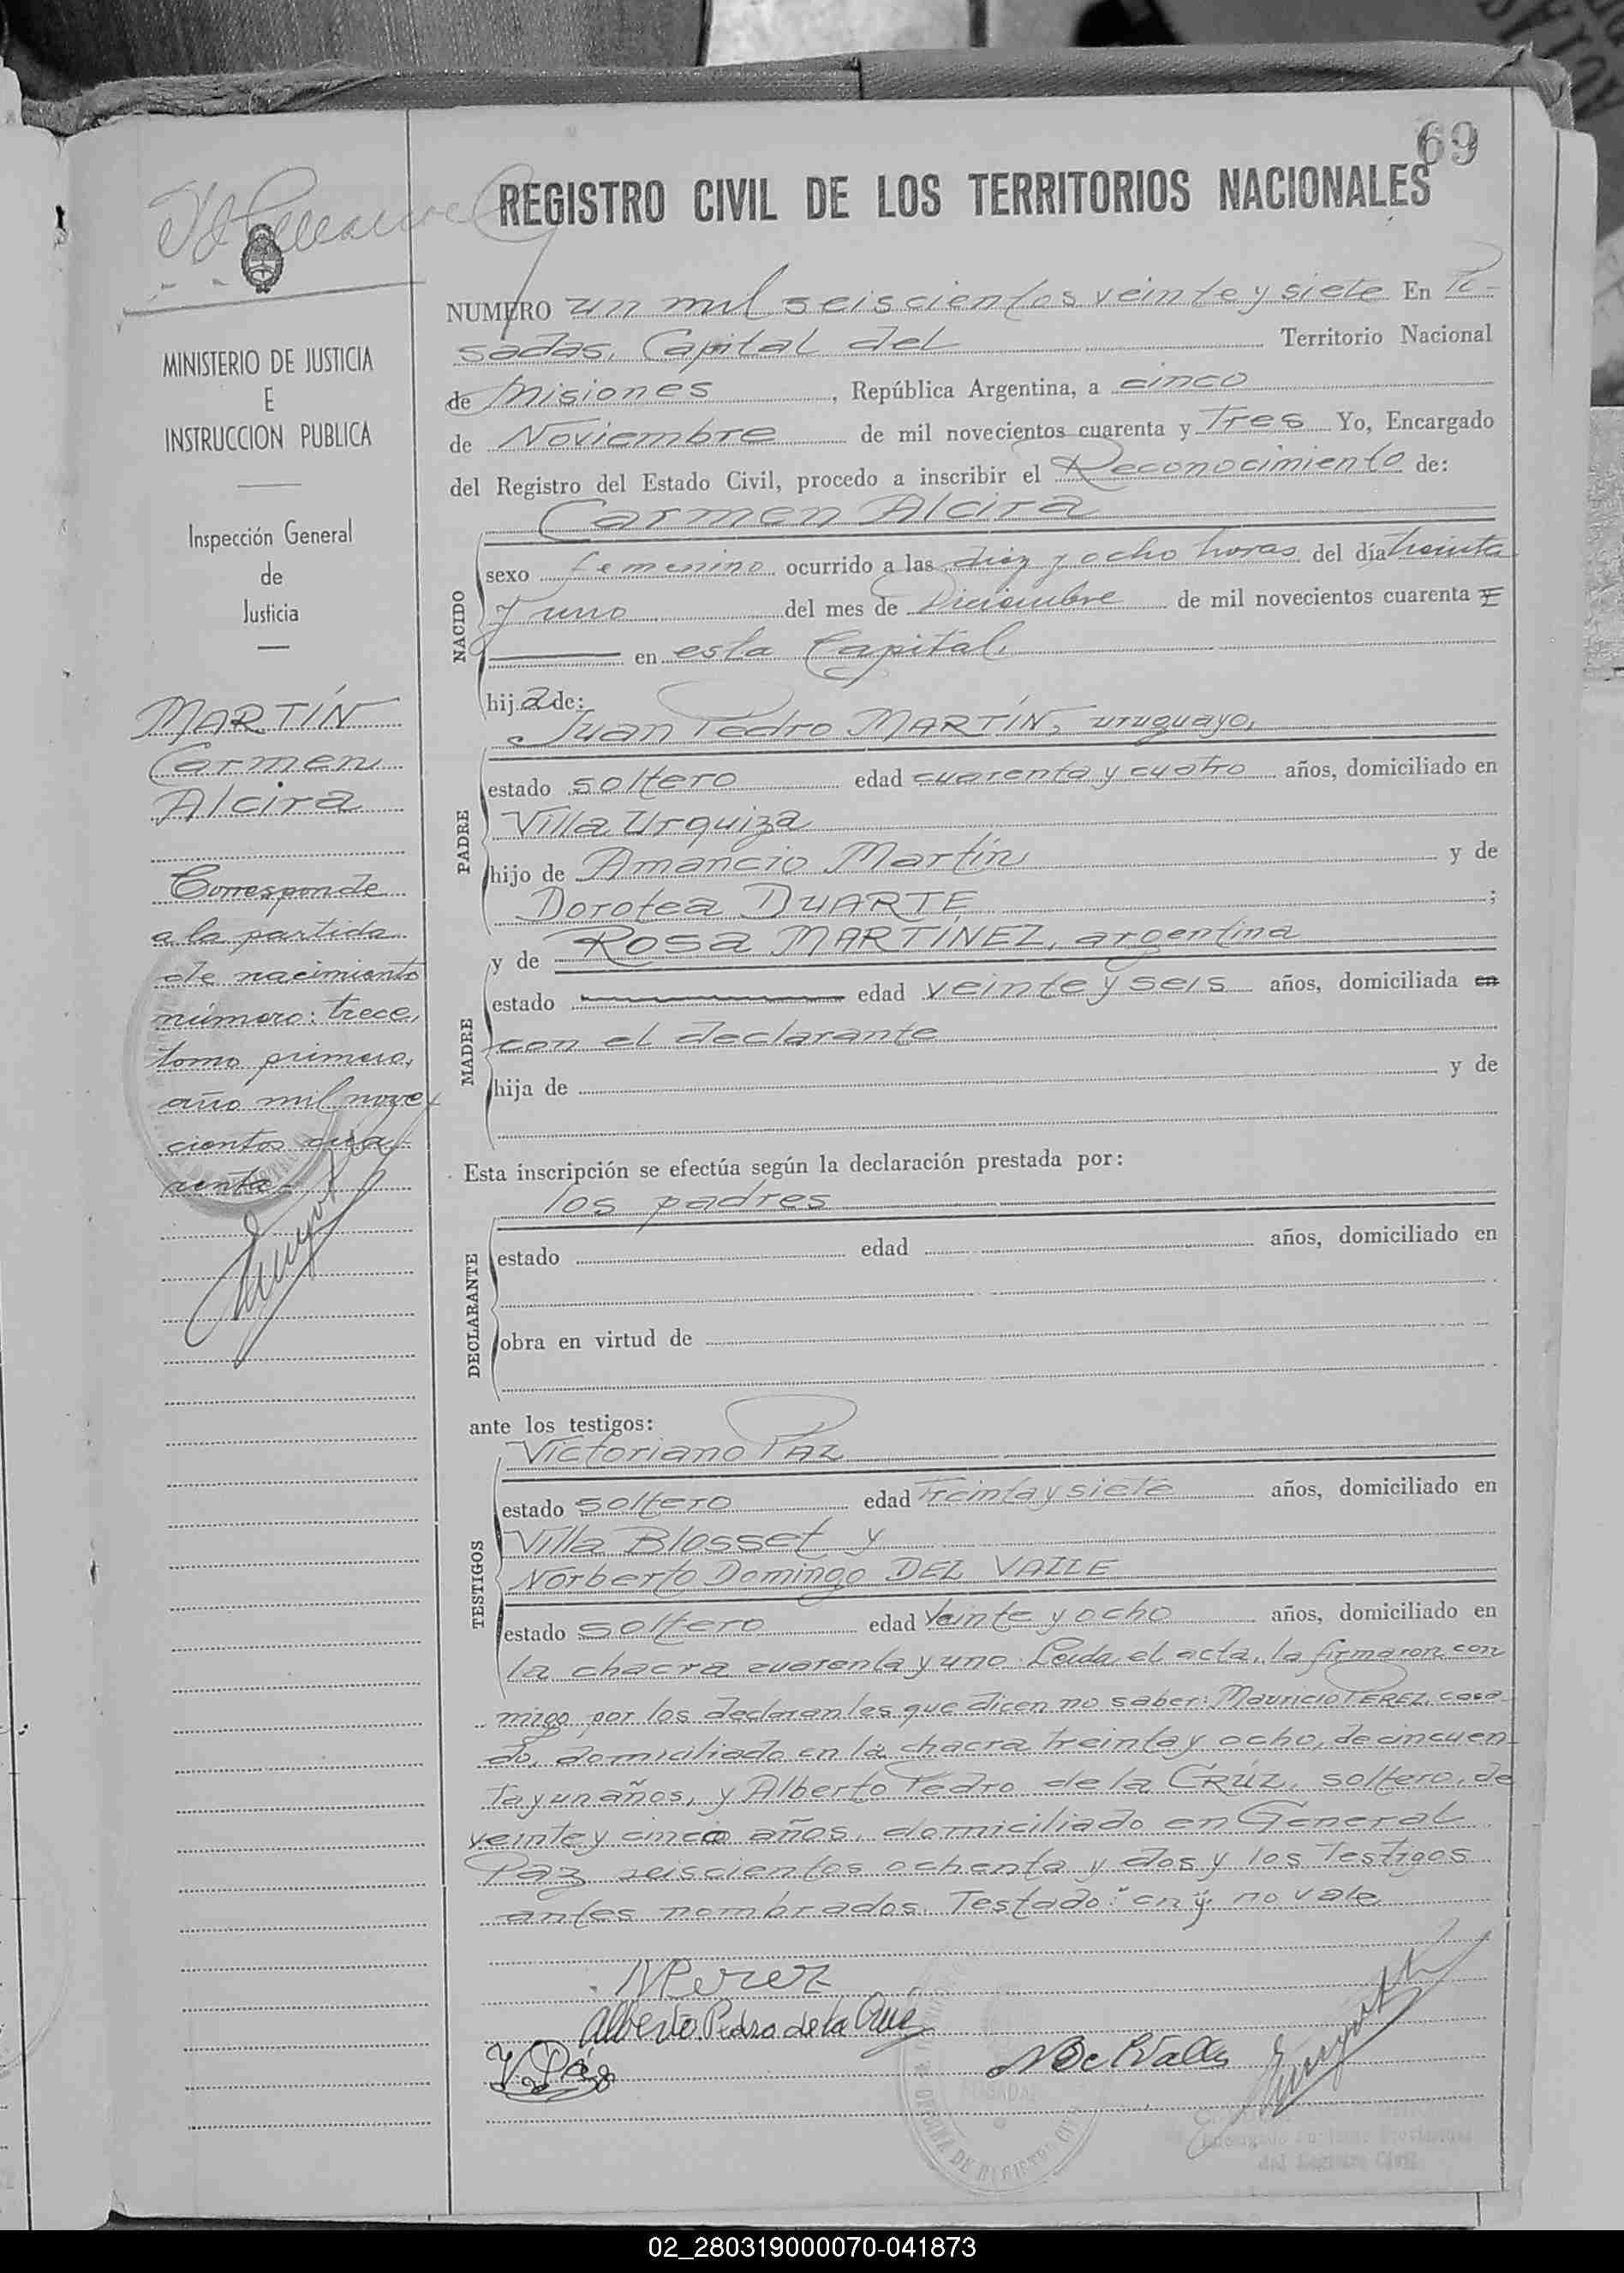 69
REGISTRO CIVIL DE LOS TERRITORIOS NACIONALES
MINISTERIO DE JUSTICIA
E
INSTRUCCION PUBLICA
Inspección General
de
Justicia
MARTÍN
Carmen
Alcira
Corresponde
a la partida
de nacimiento
número: trece,
tomo primero,
año mil nove
cientos cua
renta
NUMERO un mil seiscientos veinte y siete En Po-
sadas, Capital del Territorio Nacional
de Misiones, República Argentina, a cinco
de Noviembre de mil novecientos cuarenta y Tres Yo, Encargado
del Registro del Estado Civil, procedo a inscribir el Reconocimiento de:
Carmen Alcira
NACIDO
sexo femenino ocurrido a las diez y ocho horas del día treinta
y uno del mes de Diciembre de mil novecientos cuarenta y
en esta Capital.
hija de:
Juan Pedro MARTÍN, uruguayo,
PADRE
estado soltero edad cuarenta y cuatro años, domiciliado en
Villa Urquiza
hijo de Amancio Martín y de
Dorotea DUARTE ;
y de Rosa MARTINEZ, argentina
MADRE
estado edad veinte y seis años, domiciliada en
con el declarante
hija de y de
Esta inscripción se efectúa según la declaración prestada por:
los padres
DECLARANTE
estado edad años, domiciliado en
obra en virtud de
ante los testigos:
Victoriano PAZ
TESTIGOS
estado soltero edad Treinta y siete años, domiciliado en
Villa Blosset y
Norberto Domingo DEL VALLE
estado soltero edad Veinte y ocho años, domiciliado en
la chacra cuarenta y uno. Leida el acta, la firmaron con
migo por los declarantes que dicen no saber: Mauricio PEREZ, casa
do, domiciliado en la chacra treinta y ocho, de cincuen
ta y un años, y Alberto Pedro de la CRÚZ, soltero, de
veinte y cinco años, domiciliado en General
Paz seiscientos ochenta y dos y los Testigos
antes nombrados. Testado: "en y" no vale
MPerez
Alberto Pedro de la Cruz
V. Páz
N De lValle
OFICINA DE REGISTRO CIVIL
del Registro Civil
02_280319000070-041873